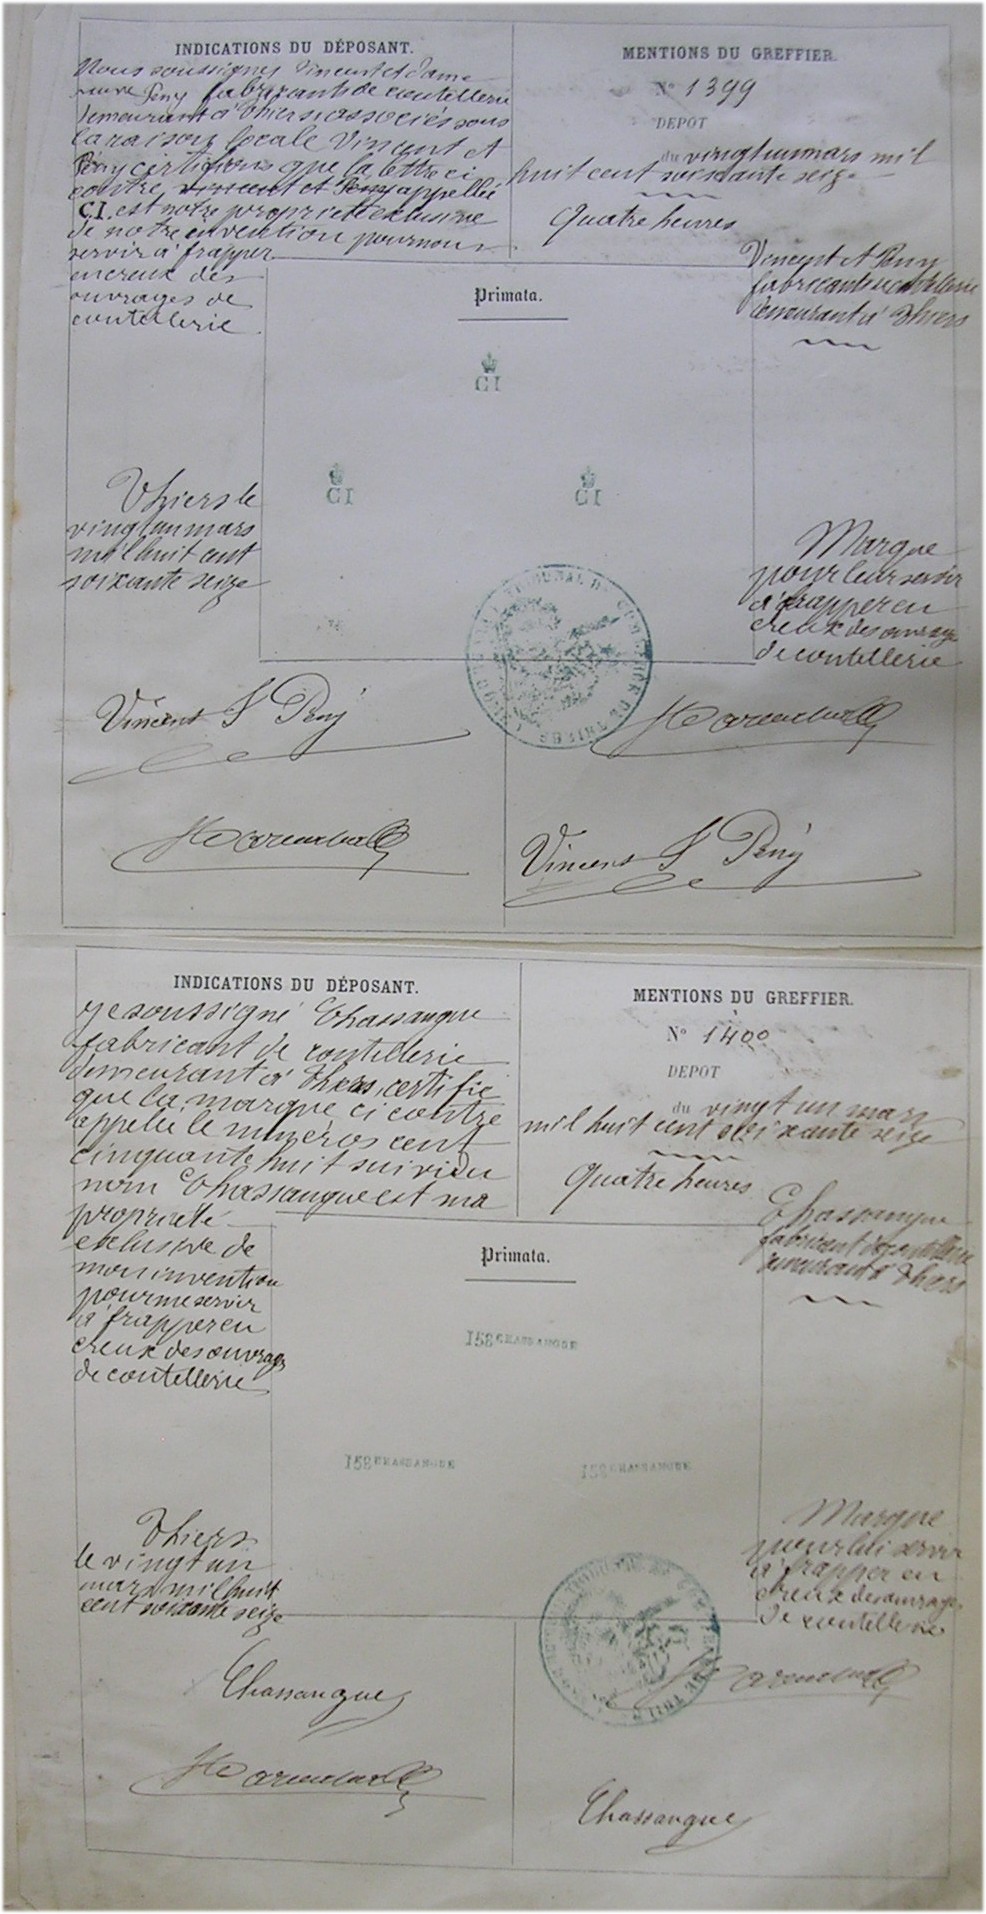 INDICATIONS DU DÉPOSANT.
Nous soussignés Vincent et Dame
veuve Peny fabricants de coutellerie
demeurant à Thiers associés sous
la raison sociale Vincent et
Peny certifions que la lettre ci
contre, et Peny appellée
C.I. est notre propriété exclusive
de notre envention pour nous
servir à frapper
en creux des
ouvrages de
coutellerie
Thiers le
vingt un mars
mil huit cent
soixante seize
Vincent & Peny
MENTIONS DU GREFFIER.
N° 1399
DEPÔT
du vingt un mars mil
huit cent soixante seize
quatre heures
Vincent et Peny
fabricants de coutellerie
demeurant à Thiers
Primata.
CI
CI
CI
Marque
pour leur servir
à frapper en
creux des ouvrages
de coutellerie
TRIBUNAL DE COMMERCE DE THIERS
Vincent & Peny
INDICATIONS DU DÉPOSANT.
Je soussigné Chassangue
fabricant de coutellerie
demeurant à Thiers, certifie
que la marque ci contre
appelée le numéros cent
cinquante huit suivi du
nom Chassangue est ma
propriété
exclusive de
mon invention
pour me servir
à frapper en
creux des ouvrages
de coutellerie
Thiers
le vingt un
mars mil huit
cent soixante seize
Chassangue
MENTIONS DU GREFFIER.
N° 1400
DEPOT
du vingt un mars
mil huit cent soixante seize
Quatre heures
Chassangue
fabricant de coutellerie
demeurant à Thiers
Primata.
158 CHASSANGUE
158 CHASSANGUE
158 CHASSANGUE
Marque
pour lui servir
à frapper en
creux des ouvrages
de coutellerie
Chassangue